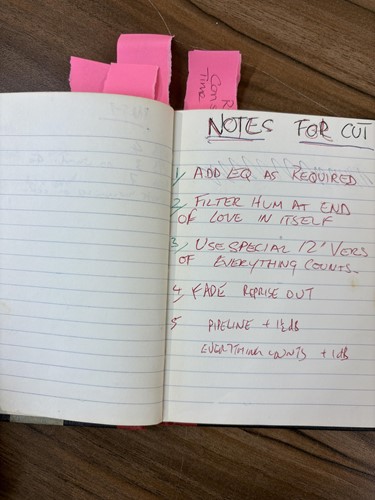 Cons
Time
NOTES FOR CUT
1, ADD EQ AS REQUIRED
2 FILTER HUM AT END
OF LOVE IN ITSELF
3, USE SPECIAL 12" VERS
OF EVERYTHING COUNTS.
4, FADE REPRISE OUT
5 PIPELINE + 1½ dB
EVERYTHING COUNTS + 1 dB